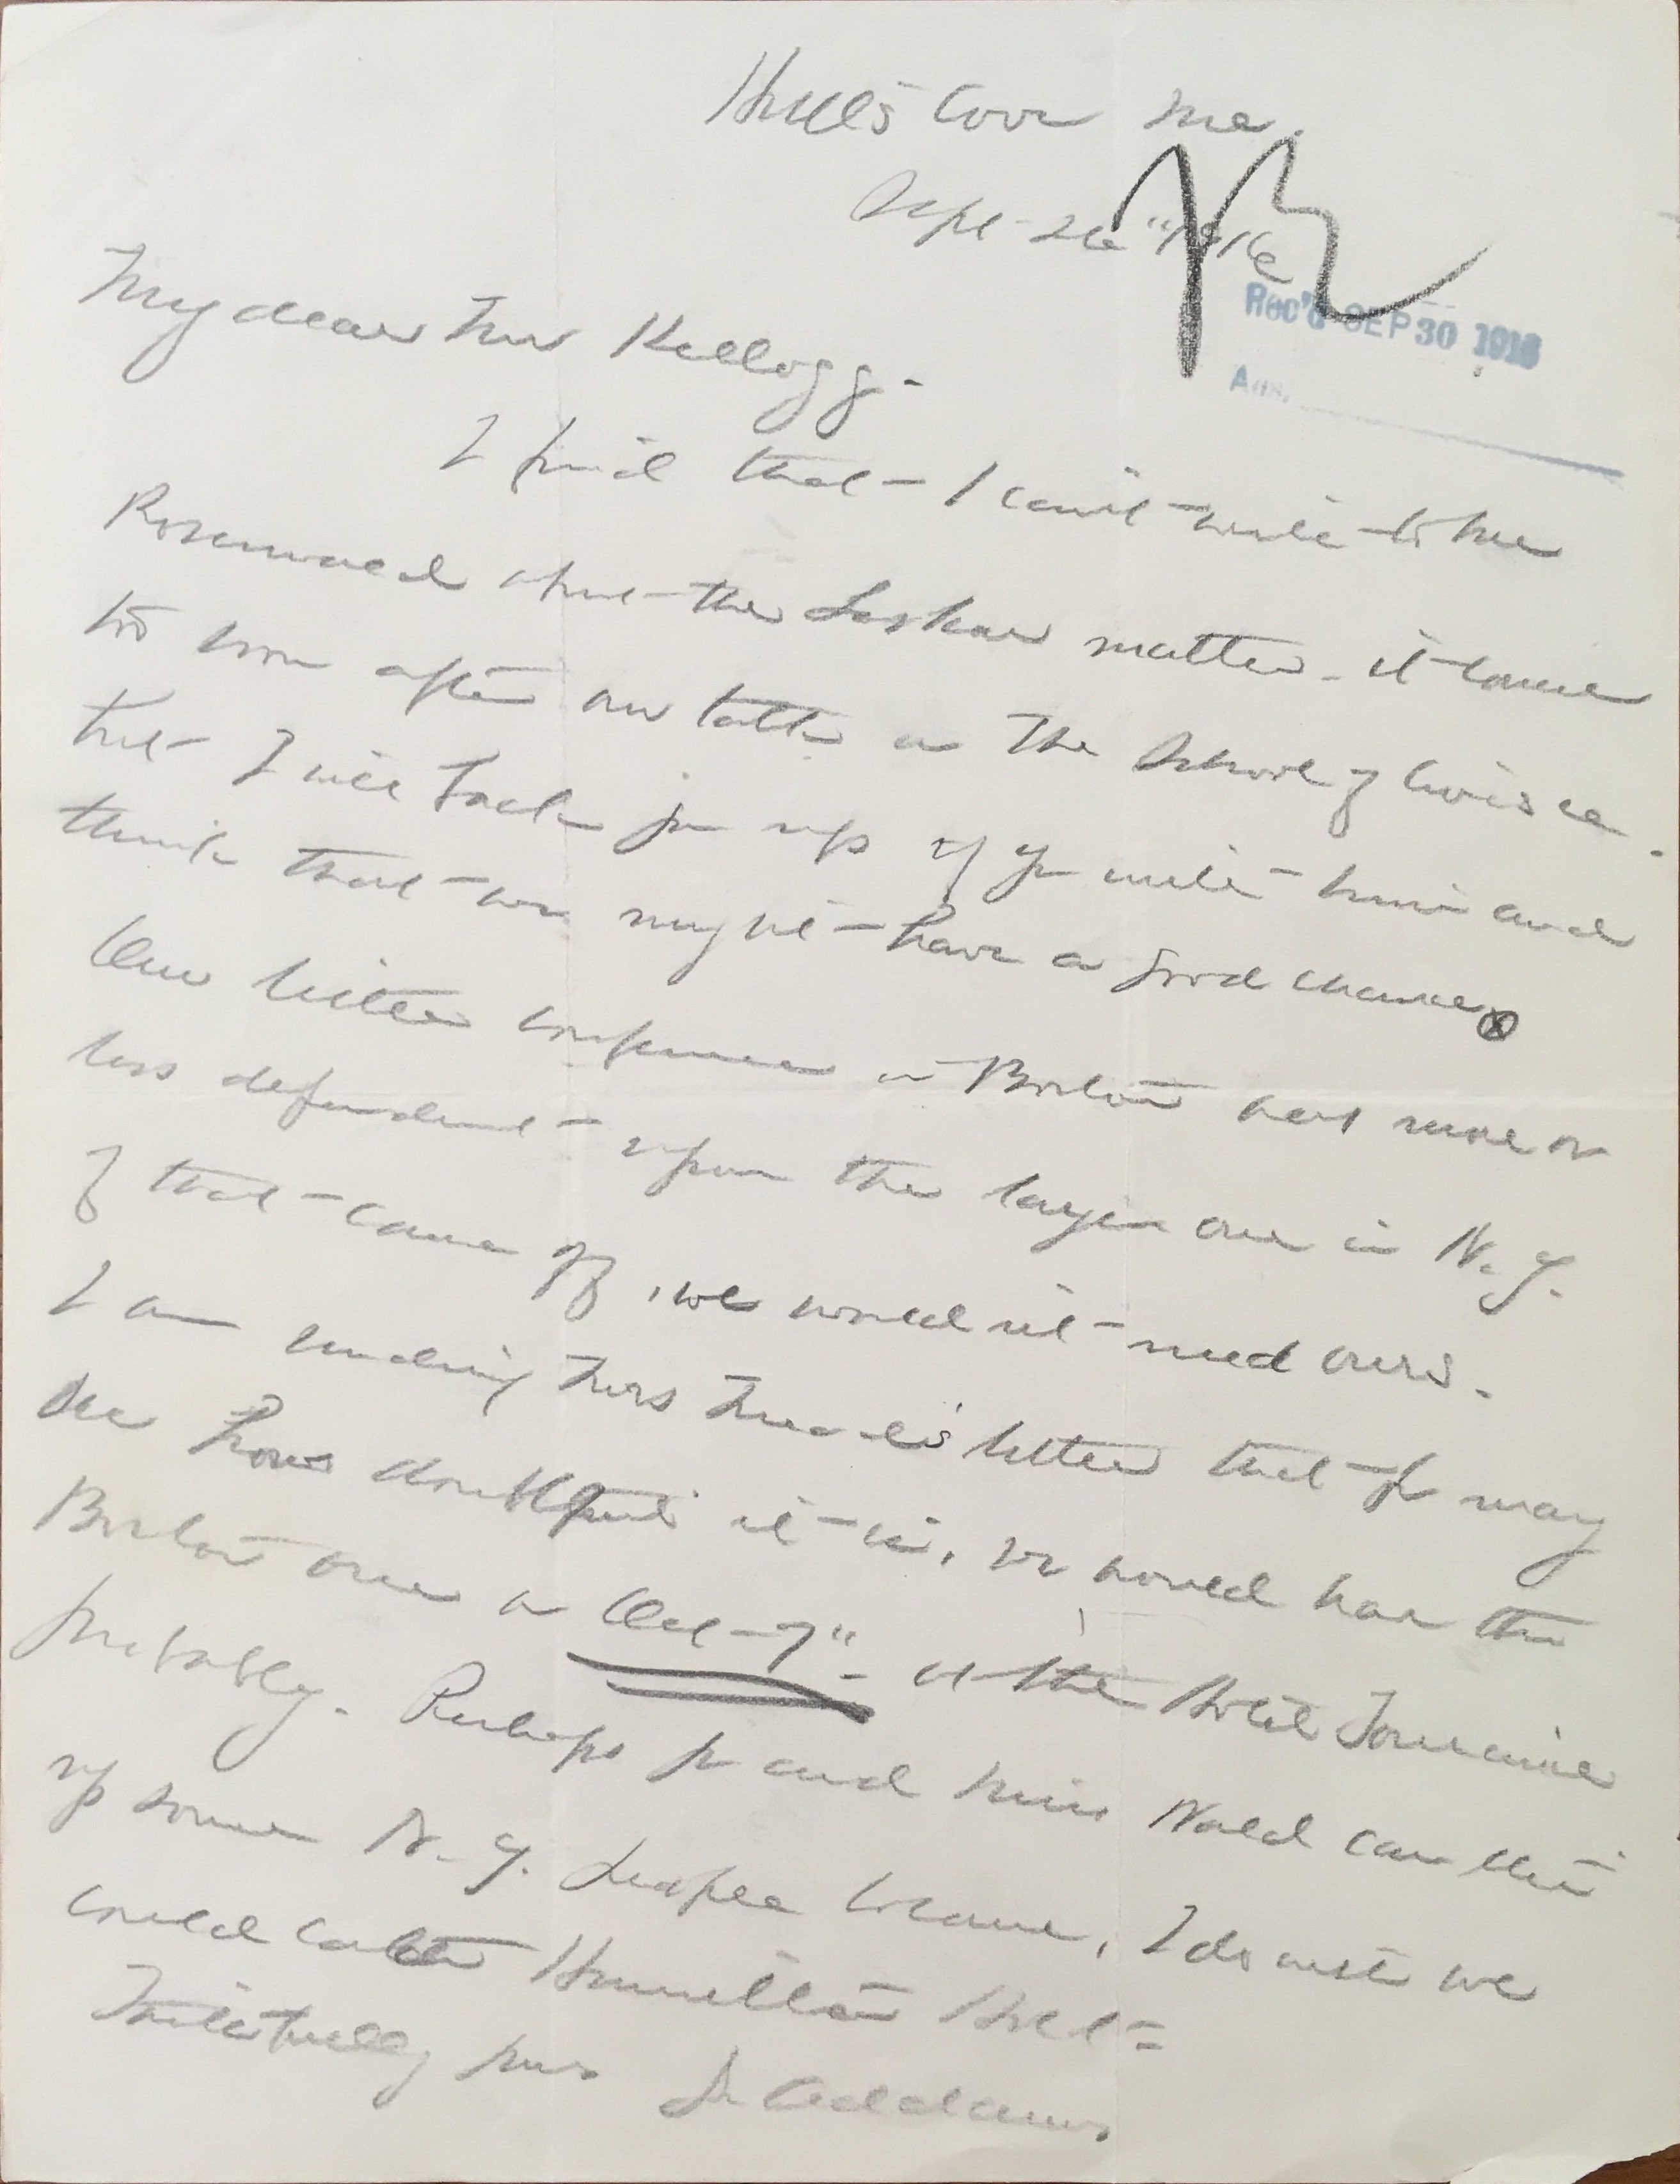 Hull's Cove Me.
Sept 26" 1916
Rec'd SEP 30 1916
Ans.
My dear Mr Kellogg -
I find that I can't write to Mr
Rosenwald about the Laskar matter - it came
too soon after our talk on The School of Civics ca.
But I will back you up if you write him and
think that we might have a good chance ⓧ
Our little conference in Boston was more or
less dependent upon the larger one in N. Y.
If that came off, we would not need ours.
I am sending Miss letter that you may
see how doubtful it is, we would have the
Boston one on Oct 7" - at the Hotel Touraine
probably. Perhaps you and Miss Wald can stir
up some N. Y. people to come, I do wish we
could catch Hamilton Holt -
Faithfully yours Jane Addams.